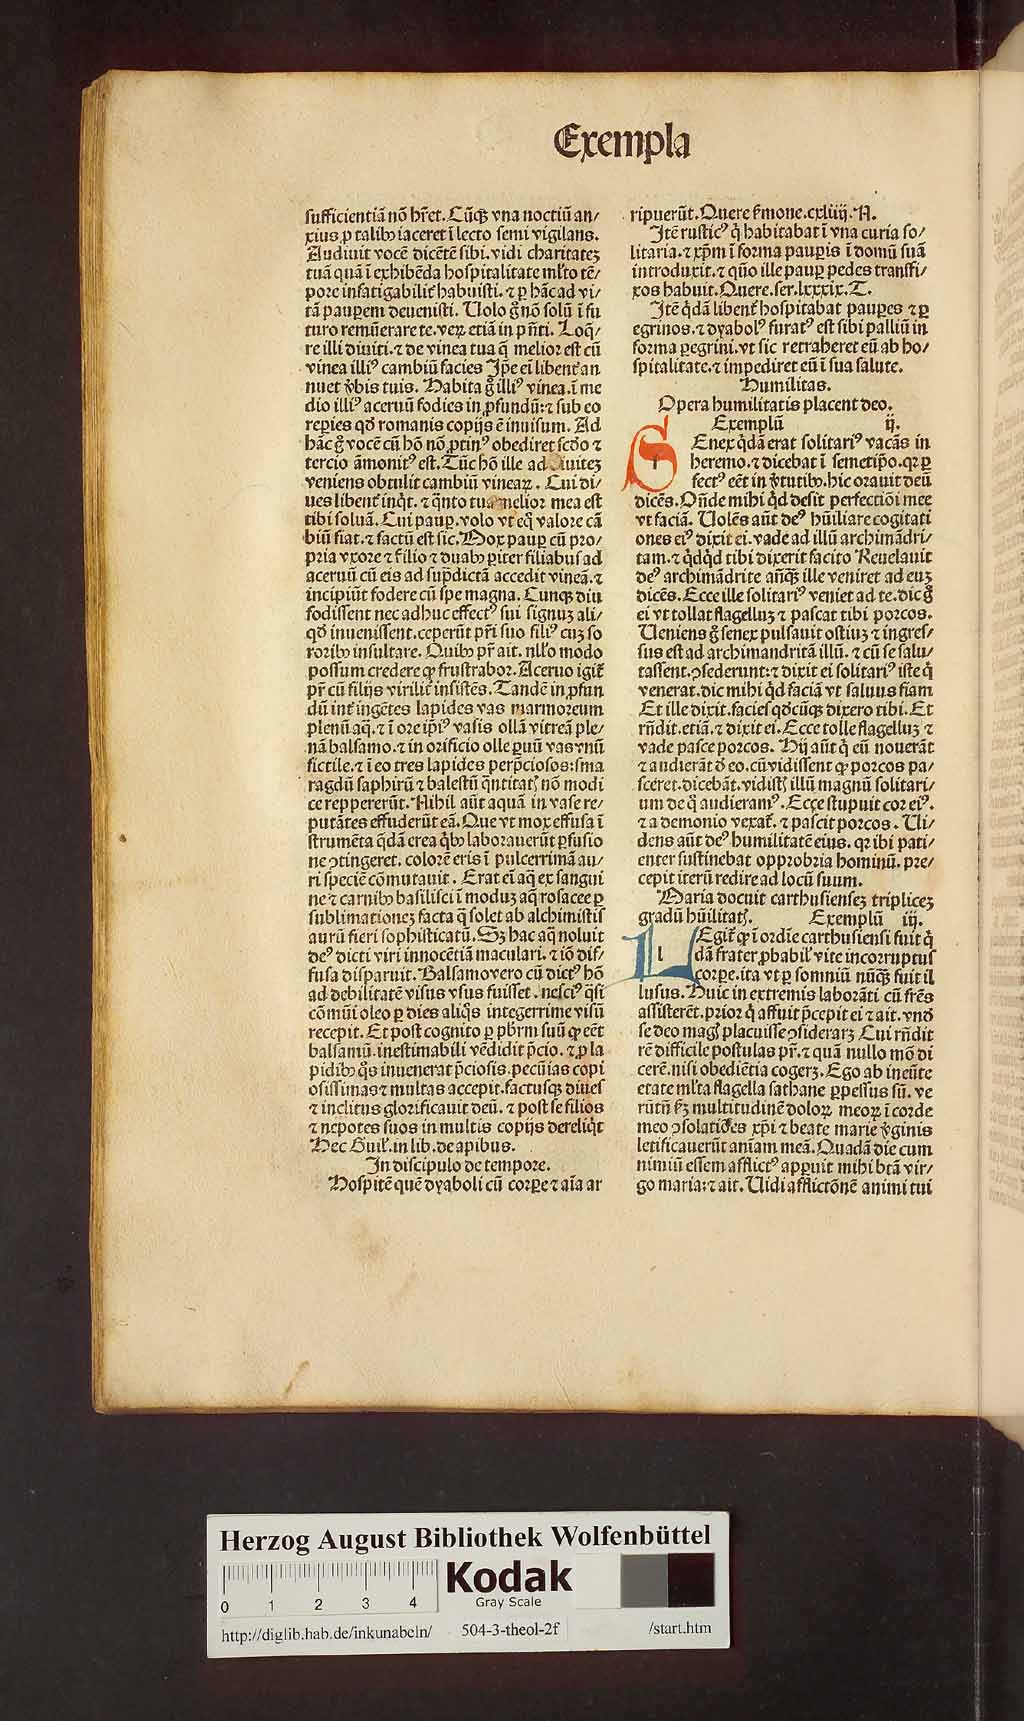 Exempla
sufficientiā nō hr̄et. Cūq̄ʒ vna noctiū an/
xius ꝓ talibꝰ iaceret ī lecto semi vigilans.
Audiuit vocē dicētē sibi. vidi charitateʒ
tuā quā ī exhibēda hospitalitate ml̓to tē/
pore infatigabilit̓ habuisti. ⁊ ꝑ hāc ad vi/
tā pauperū deuenisti. Uolo g̊ nō solū ī fu
turo remūerare te. veꝝ etiā in pn̄ti. Loq̄/
re illi diuiti. ⁊ de vinea tua q̄ melior est cū
vinea illiꝰ cambiū facies Ip̄e ei libent̓ an
nuet v̓bis tuis. Habita g̊ illiꝰ vinea. ī me
dio illiꝰ aceruū fodies in ꝓfundū: ⁊ sub eo
reṕies qd̓ romanis copijs ē inuisum. Ad
hāc g̊ vocē cū hō nō ꝓtinꝰ obediret scd̓o ⁊
tercio āmonitꝰ est. Tūc hō ille ad diuiteʒ
veniens obtulit cambiū vineaꝝ. Cui di/
ues libent̓ inq̇t. ⁊ q̄nto tua melior mea est
tibi soluā. Cui pauꝑ. volo vt eq̄ valore cā
biū fiat. ⁊ factū est sic. Mox pauꝑ cū pro/
pria vxore ⁊ filio ⁊ duabꝰ ꝑiter filiabus ad
aceruū cū eis ad sup̄dictā accedit vineā. ⁊
incipiūt fodere cū spe magna. Cunqʒ diu
fodissent nec adhuc effectꝰ sui signuʒ ali/
qd̓ inuenissent. ceperūt pr̄i suo filiꝰ cuʒ so
roribꝰ insultare. Quibꝰ pr̄ ait. nll̓o modo
possum credere ꝙ frustrabor. Aceruo igit̓
pr̄ cū filijs virilit̓ insistēs. Tandē in ꝓfun
dū int̓ ingētes lapides vas marmoreum
plenū aq̄. ⁊ ī ore ip̄iꝰ vasis ollā vitreā ple/
nā balsamo. ⁊ in orificio olle ꝑuū vas vnū
fictile. ⁊ ī eo tres lapides perp̄ciosos: sma
ragdū saphirū ⁊ balestū q̄ntitatꝭ nō modi
ce reppererūt. Nihil aūt aquā in vase re/
putātes effuderūt eā. Que vt mox effusa ī
strumēta q̄dā erea q̇bꝰ laborauerūt ꝑfusio
ne ↄtingeret. colorē eris ī pulcerrimā au/
ri speciē cōmutauit. Erat ei aq̄ ex sangui
ne ⁊ carnibꝰ basilisci ī moduʒ aq̄ rosacee ꝑ
sublimationeʒ facta q̄ solet ab alchimistis
aurū fieri sophisticatū. Sʒ hac aq̄ noluit
deꝰ dicti viri innocētiā maculari. ⁊ iō dif/
fusa disparuit. Balsamo vero cū dictꝰ hō
ad debilitatē visus vsus fuisset. nesciꝰ q̄si
cōmūi oleo ꝑ dies aliq̄s integerrime visū
recepit. Et post cognito ꝑ pb̄rm suū ꝙ eēt
balsamū. inestimabili vēdidit p̄cio. ⁊ ꝓ la
pidibꝰ q̄s inuenerat p̄ciosis. pecūias copi
osissimas ⁊ multas accepit. factusqʒ diues
⁊ inclitus glorificauit deū. ⁊ post se filios
⁊ nepotes suos in multis copijs dereliq̇t
Hec Guil̓. in lib. de apibus.
In discipulo de tempore.
Hospitē quē dyaboli cū corꝑe ⁊ aīa ar
ripuerūt. Quere s̓mone. cxliiij. N.
Itē rusticꝰ q̇ habitabat ī vna curia so/
litaria. ⁊ xp̄m ī forma pauꝑis ī domū suā
introduxit. ⁊ quō ille pauꝑ pedes transfi/
xos habuit. Quere. ser. lxxxix. T.
Itē q̇dā libent̓ hospitabat pauꝑes ⁊ ꝑ
egrinos. ⁊ dyabolꝰ furatꝰ est sibi palliū in
forma ꝑegrini. vt sic retraheret eū ab ho/
spitalitate. ⁊ impediret eū ī sua salute.
Humilitas.
Opera humilitatis placent deo.
Exemplū ij.
SEnex q̇dā erat solitariꝰ vacās in
heremo. ⁊ dicebat ī semetip̄o. qꝛ ꝑ
fectꝰ eēt in v̓tutibꝰ. hic orauit deū
dicēs. Onde mihi qd̓ desit perfectiōi mee
vt faciā. Uolēs aūt deꝰ hūiliare cogitati
ones eiꝰ dixit ei. vade ad illū archimādri/
tam. ⁊ q̇dq̇d tibi dixerit facito Reuelauit
deꝰ archimādrite ānq̄ʒ ille veniret ad euʒ
dicēs. Ecce ille solitariꝰ veniet ad te. dic g̊
ei vt tollat flagelluʒ ⁊ pascat tibi porcos.
Ueniens g̊ senex pulsauit ostiuʒ ⁊ ingres/
sus est ad archimandritā illū. ⁊ cū se salu/
tassent. ↄsederunt: ⁊ dixit ei solitariꝰ iste q̇
venerat. dic mihi qd̓ faciā vt saluus fiam
Et ille dixit. facies qd̓cūqʒ dixero tibi. Et
rn̄dit. etiā. ⁊ dixit ei. Ecce tolle flagelluʒ ⁊
vade pasce porcos. Hij aūt q̇ eū nouerāt
⁊ audierāt d̓ eo. cū vidissent ꝙ porcos pa/
sceret. dicebāt. vidistꝭ illū magnū solitari/
um de q̊ audieramꝰ. Ecce stupuit cor eiꝰ.
⁊ a demonio vexat̓. ⁊ pascit porcos. Ui/
dens aūt deꝰ humilitatē eius. qꝛ ibi pati/
enter sustinebat opprobria hominū. pre/
cepit iterū redire ad locū suum.
Maria docuit carthusienseʒ tripliceʒ
gradū hūilitatꝭ. Exemplū iij.
LEgit̓ ꝙ ī ordīe carthusiensi fuit q̇
dā frater ꝓbabil̓ vite incorruptus
corꝑe. ita vt ꝑ somniū nūq̄ʒ fuit il
lusus. Huic in extremis laborāti cū fr̄es
assisterēt. prior q̇ affuit p̄cepit ei ⁊ ait. vnd̓
se deo magꝭ placuisse ↄsideraꝝ Cui rn̄dit
rē difficile postulas pr̄. ⁊ quā nullo mō di
cerē. nisi obediētia cogerʒ. Ego ab ineūte
etate ml̓ta flagella sathane ꝑpessus sū. ve
rūtn̄ s̓ʒ multitudinē doloꝝ meoꝝ ī corde
meo ↄsolatiōes xp̄i ⁊ beate marie v̓ginis
letificauerūt aniam meā. Quadā die cum
nimiū essem afflictꝰ apꝑuit mihi btā vir/
go maria: ⁊ ait. Uidi afflictōnē animi tui
Herzog August Bibliothek Wolfenbüttel
0 1 2 3 4
Kodak
Gray Scale
http://diglib.hab.de/inkunabeln/ 504-3-theol-2f /start.htm